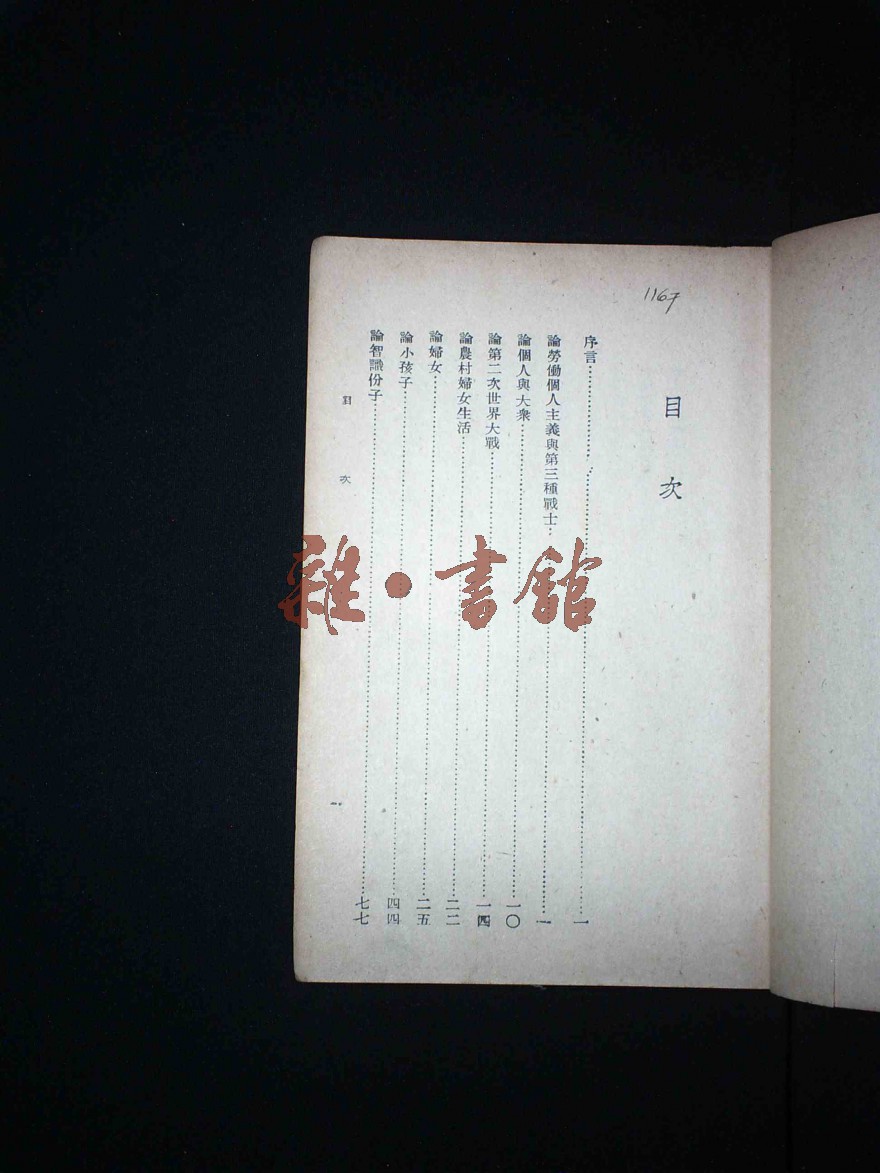 1167
目次
序言……………一
論勞働個人主義與第三種戰士……………一
論個人與大衆……………一〇
論第二次世界大戰……………一四
論農村婦女生活……………二二
論婦女……………二五
論小孩子……………四四
論智識份子……………七七
目次
一
雜·書館